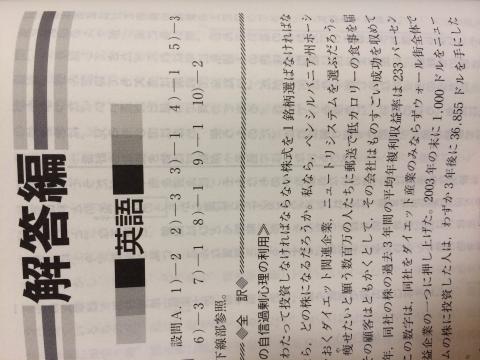 解答編
英語
設問A. 1)－2 2)－3 3)－1 4)－1 5)－3
6)－3 7)－1 8)－1 9)－1 10)－2
下線部参照。
◆全 訳◆
の自信過剰心理の利用＞
わたって投資しなければならない株式を1銘柄選ばなければな
ら，どの株になるだろうか。私なら，ペンシルバニア州ホーシ
おくダイエット関連企業，ニュートリシステムを選ぶだろう。
痩せたいと願う数百万の人たちに郵送で低カロリーの食事を届
の顧客はともかくとして，その会社はものすごい成功を収めて
年，同社の株の過去3年間の平均年複利収益率は233パーセン
この数字は，同社をダイエット産業のみならずウォール街全体で
益企業の一つに押し上げた。2003年の末に1,000ドルをニュー
ムの株に投資した人は，わずか3年後に36,855ドルを手にした